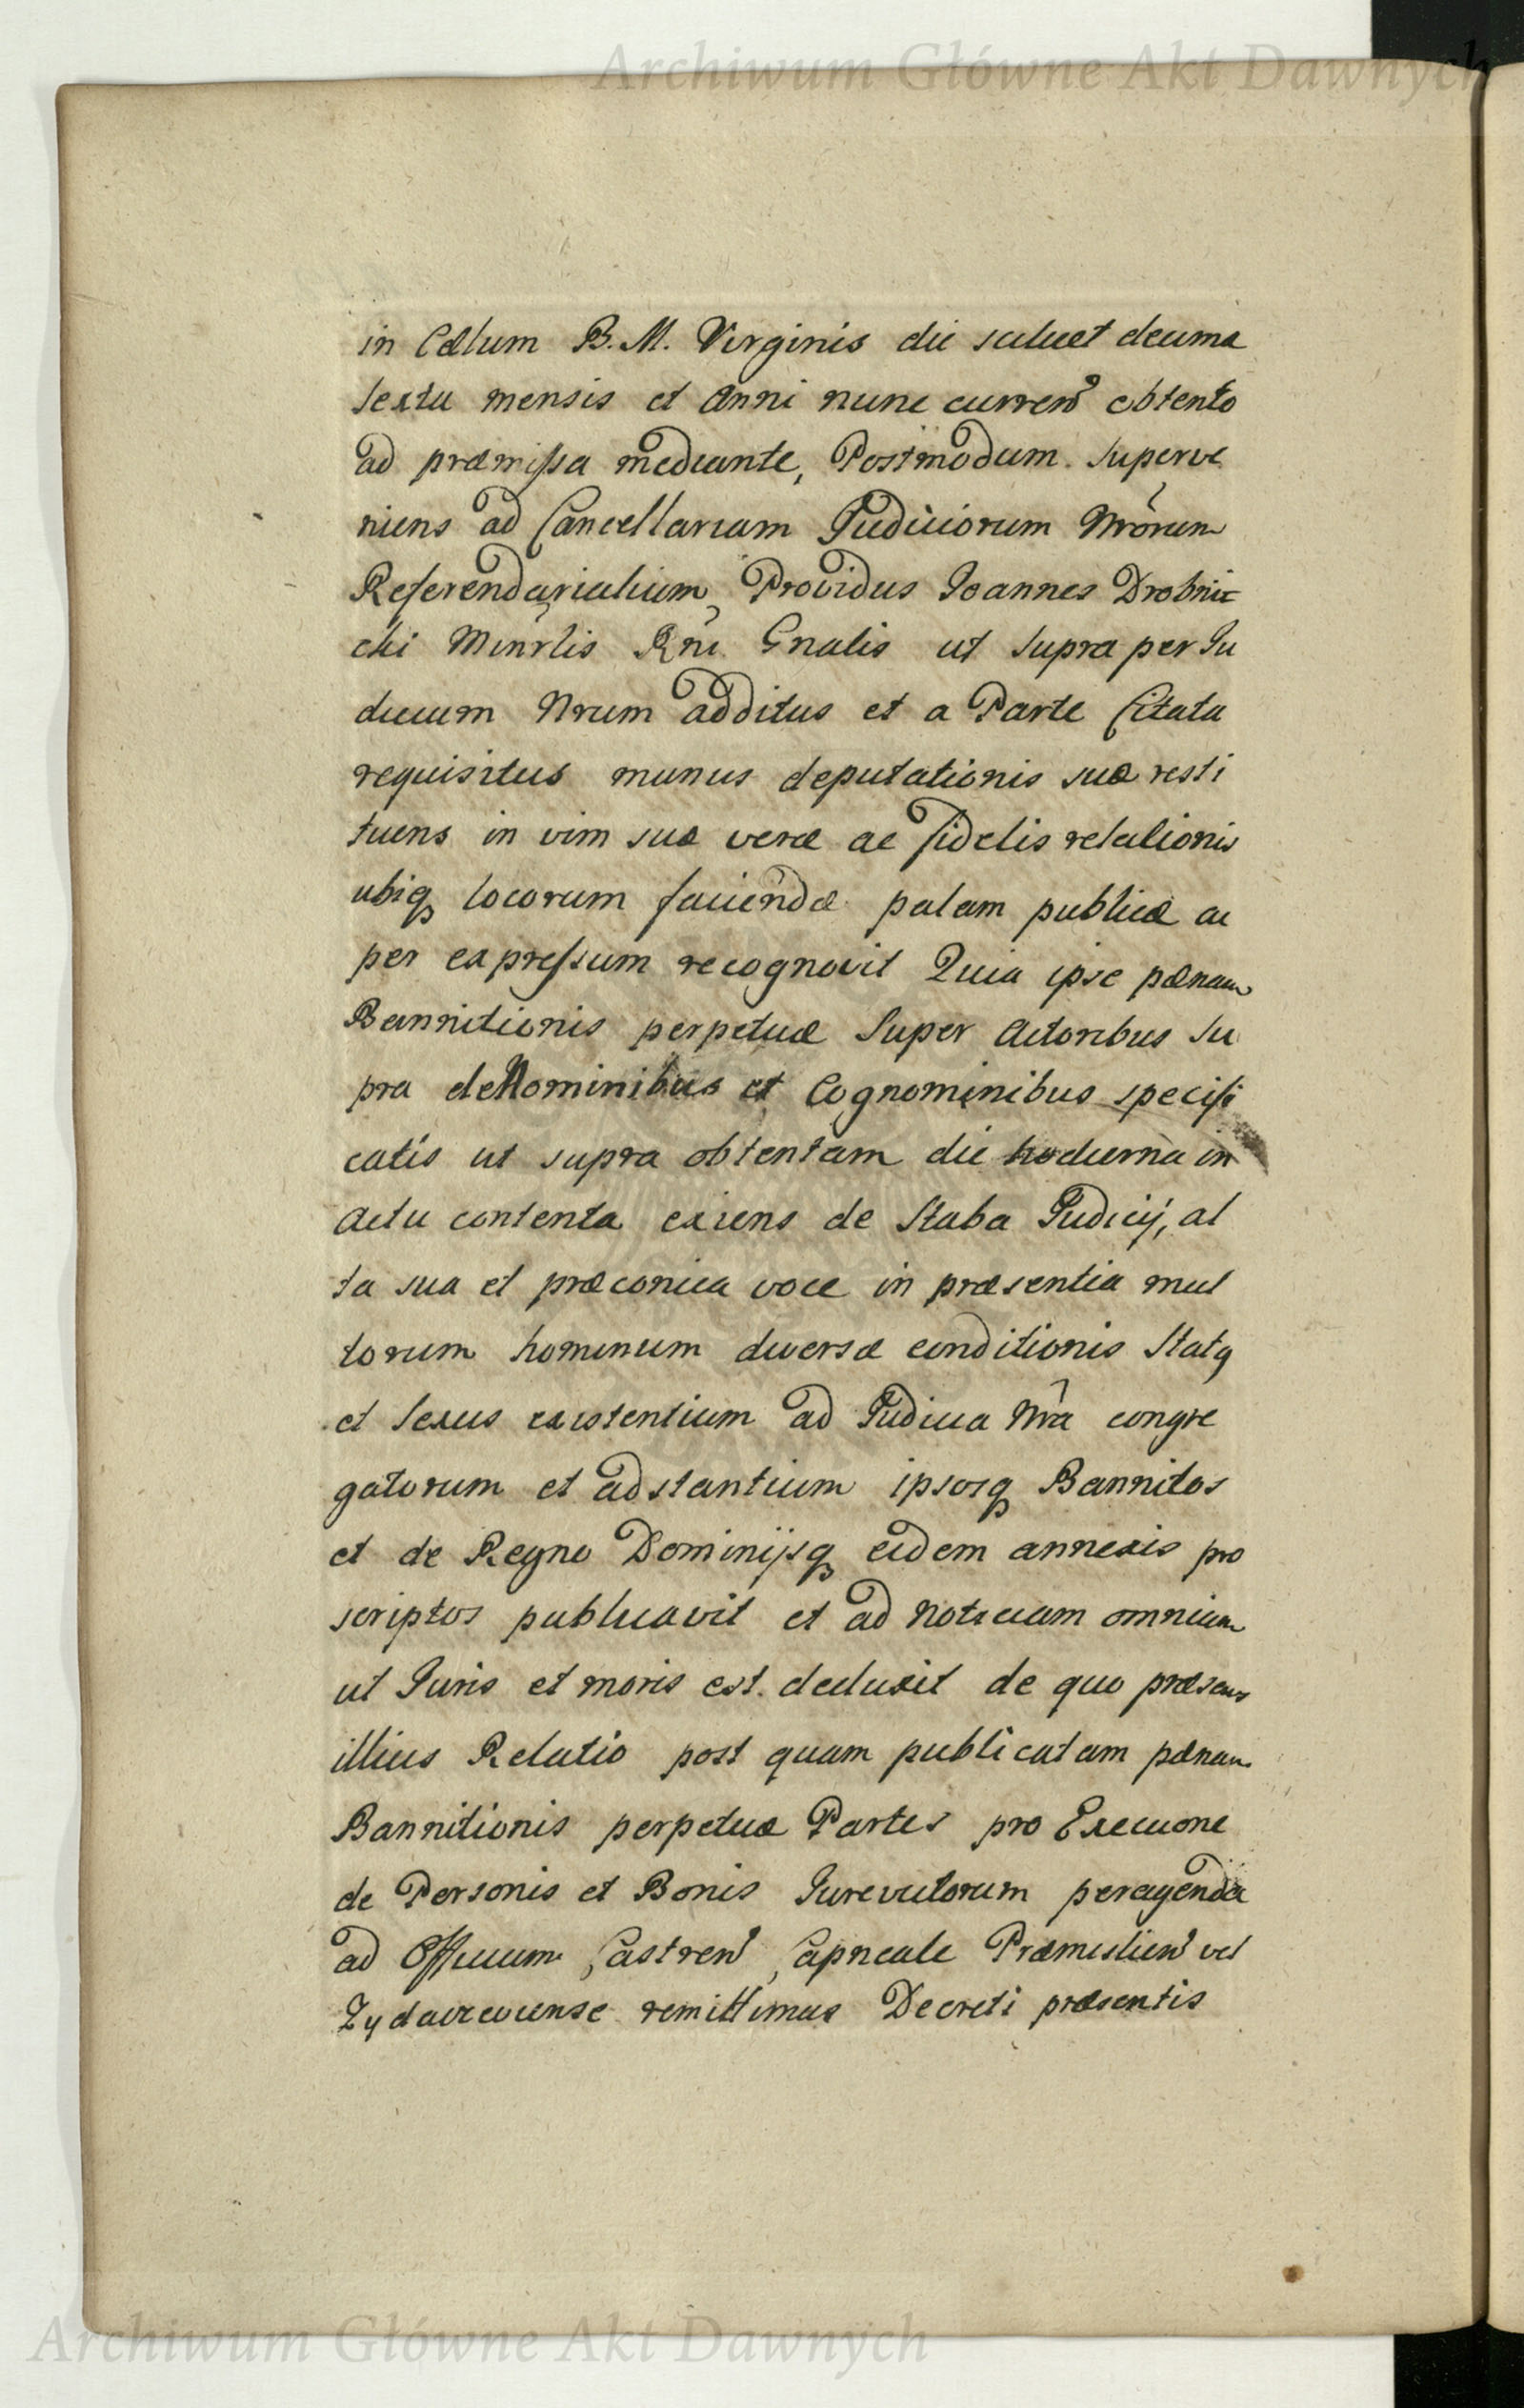 Archiwum Główne Akt Dawnych
in Cælum B. M. Virginis die scilicet decima
sexta mensis et Anni nunc curren̄ obtento
ad præmissa mediante, Postmodum superve
niens ad Cancellariam Judiciorum Nrôrum
Referendarialium, Providus Joannes Drobnic
cki Minrlis Rni Gnalis ut supra per Ju
dicium Nrum additus et a Parte Citata
requisitus munus deputationis suæ resti
tuens in vim suæ veræ ac fidelis relationis
ubiq locorum faciendæ palam publicæ ac
per expressum recognovit Quia ipse pænam
Bannitionis perpetuæ super Actoribus su
pra de Nominibus et Cognominibus specifi
catis ut supra obtentam die hodierna in
Actu contenta exiens de Staba Judicij, al
ta sua et præconica voce in præsentia mul
torum hominum diversæ conditionis Statq
et sexus existentium ad Judicia Nra congre
gatorum et adstantium ipsosq Bannitos
et de Regno Dominijsq eidem annexis pro
scriptos publicavit et ad noticiam omnium
ut Juris et moris est deduxit de quo præsens
illius Relatio post quam publicatam pænam
Bannitionis perpetuæ Partes pro Execuone
de Personis et Bonis Jurevictorum peragenda
ad Officium Castren̄ Capneale Præmislien̄ vel
Zydaczoviense remittimus Decreti præsentis
Archiwum Główne Akt Dawnych